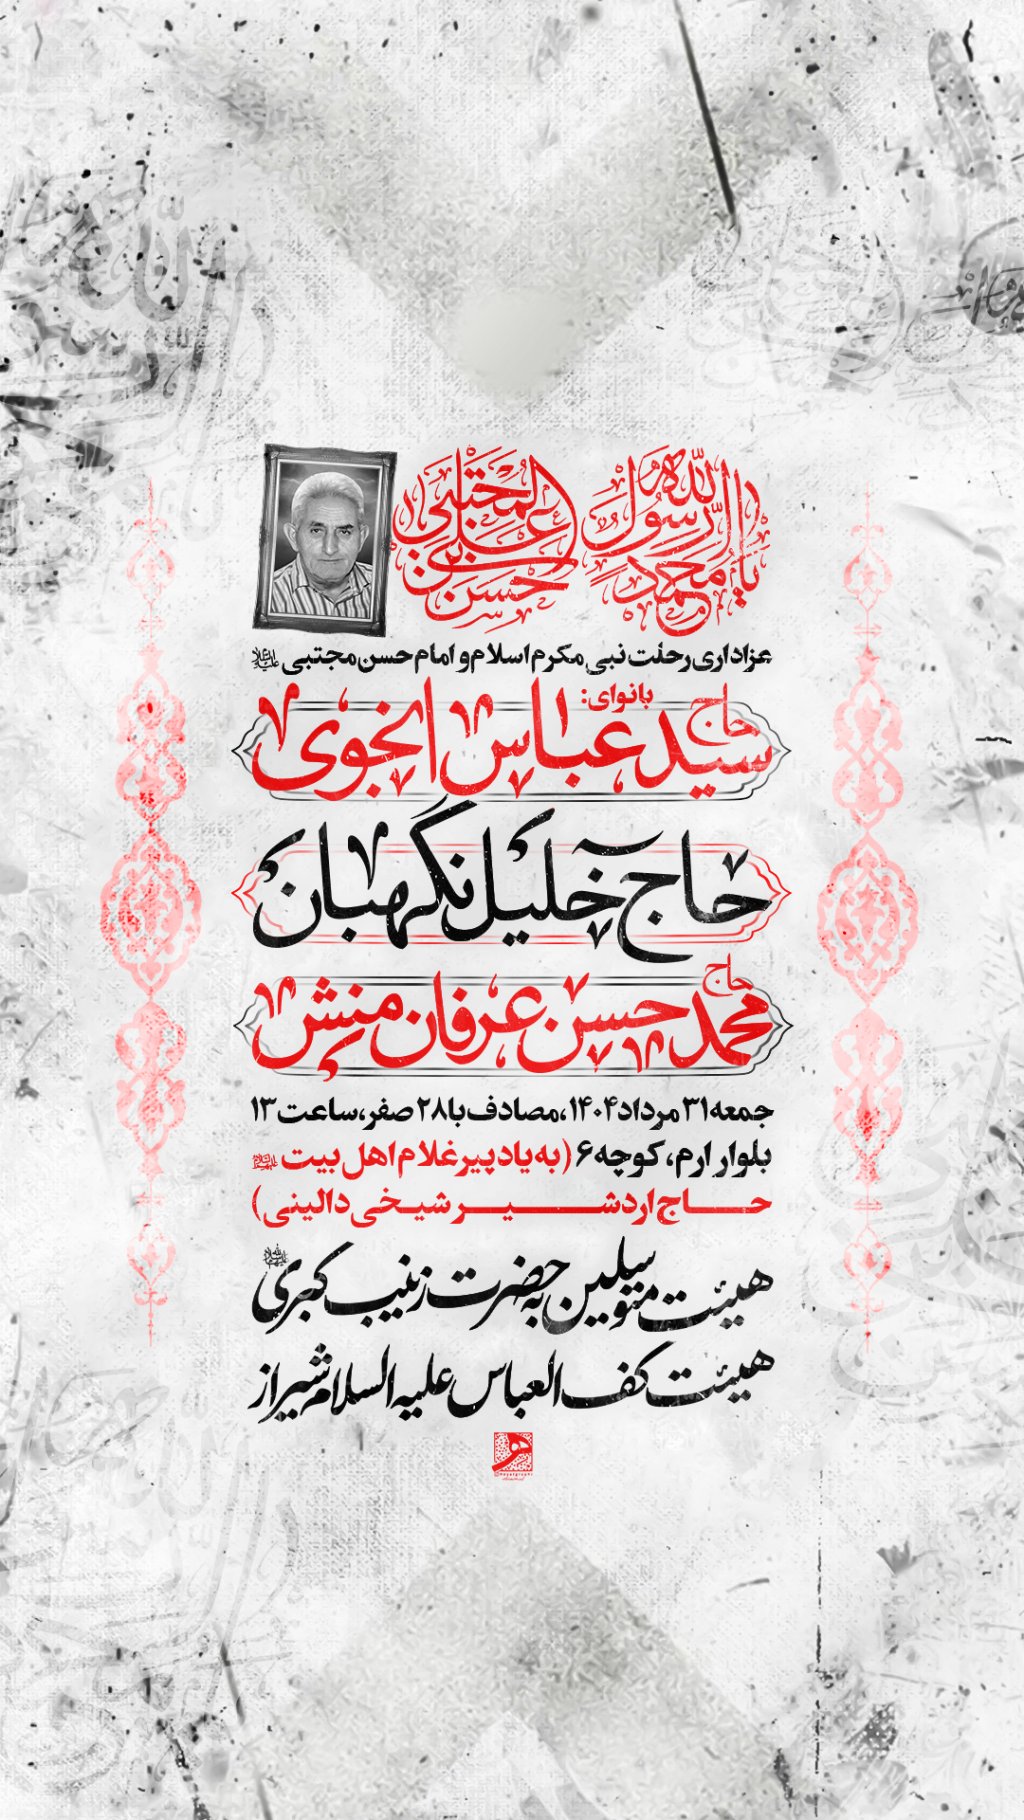 یا محمد رسول الله
حسن بن علی المجتبی
عزاداری رحلت نبی مکرم اسلام و امام حسن مجتبی علیه‌السلام
بانوای:
حاج سید عباس انجوی
حاج خلیل نگهبان
حاج محمد حسین عرفان منش
جمعه ۳۱ مرداد ۱۴۰۴، مصادف با ۲۸ صفر، ساعت ۱۳
بلوار ارم، کوچه ۶ (به یاد پیرغلام اهل بیت
حاج اردشیر شیخی دالینی)
هیئت متوسلین به حضرت زینب کبری
هیئت کف العباس علیه السلام شیراز